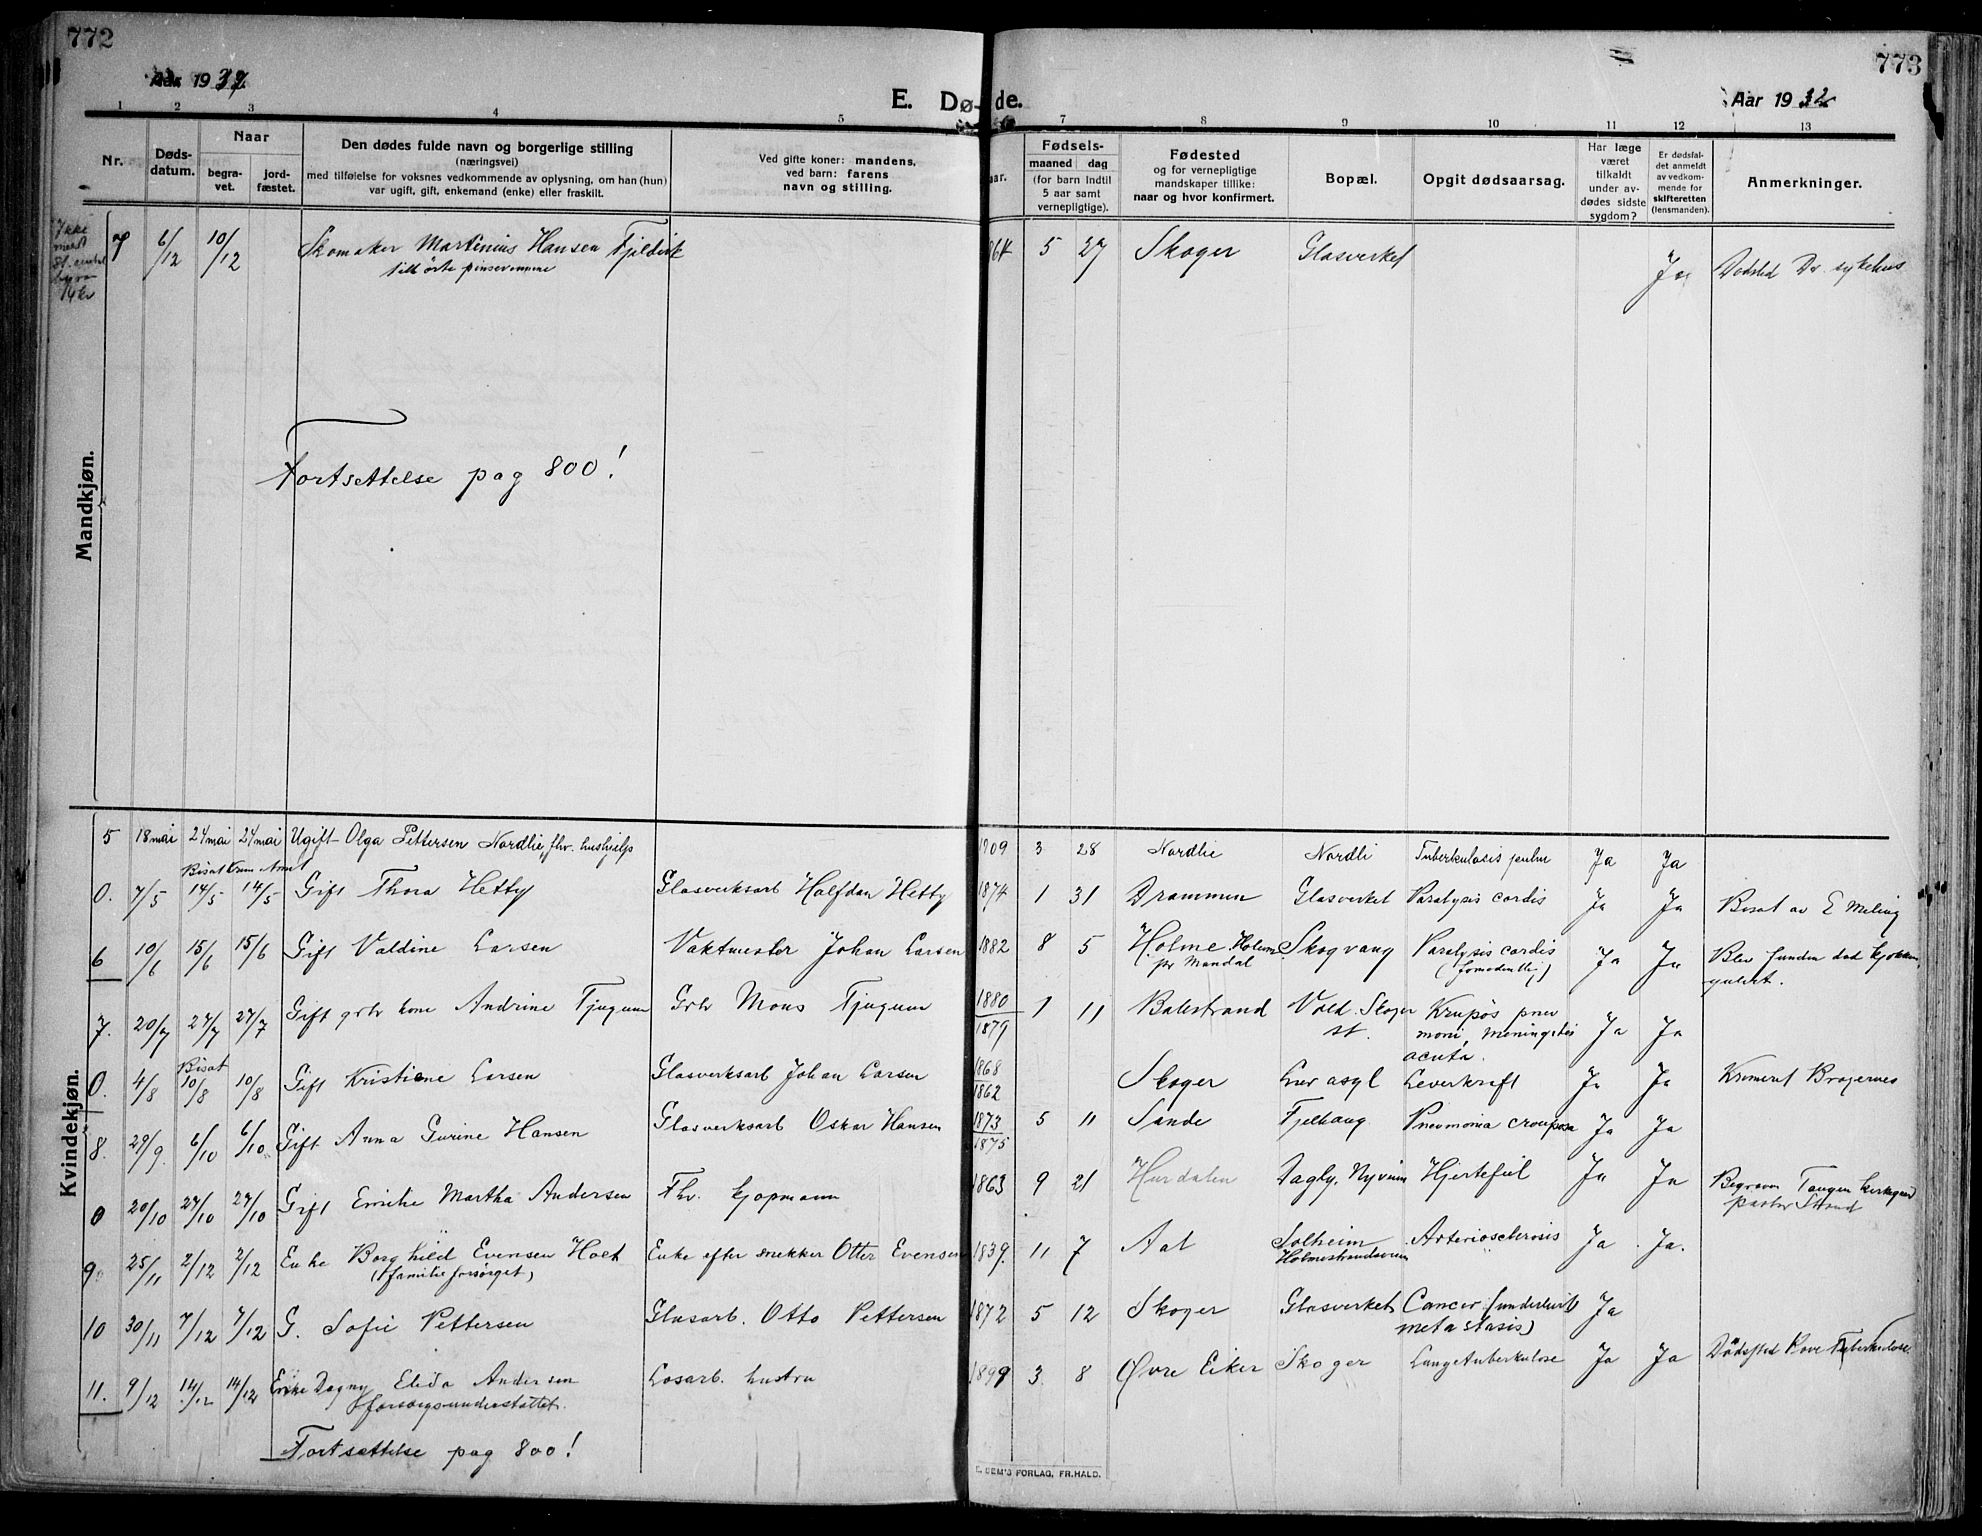 772
773
Aar 1932
E. Døde.
Aar 1932
1 2 3 4 5 7 8 9 10 11 12 13
Nr.
Døds-
datum.
Naar
begra-
vet.
jord-
fæstet.
Den dødes fulde navn og borgerlige stilling
(næringsvei)
med tilføielse for voksnes vedkommende av oplysning, om han (hun)
var ugift, gift, enkemand (enke) eller fraskilt.
Ved gifte koner: mandens,
ved barn: farens
navn og stilling.
Fødsels-
maaned dag
(for barn indtil
5 aar samt
vernepligtige).
Fødested
og for vernepligtige
mandskaper tillike:
naar og hvor konfirmert.
Bopæl.
Opgit dødsaarsag.
Har læge
været
tilkaldt
under av-
dødes sidste
sygdom?
Er dødsfal-
det anmeldt
av vedkom-
mende for
skifteretten
(lensmanden).
Anmerkninger.
Ikke
14 kr
Mandkjøn.
7 6/12 10/12 Skomaker Martinius Hansen 864 5 27 Skoger Glasverket Ja Dødsted Dr. sykehus
pinsevennene
Fortsettelse pag 800!
Kvindekjøn.
5 18 mai 24 mai 24 mai Ugift Olga Pettersen Nordlie, fhv. hushjelp 1909 3 28 Nordlie Nordli Tuberkulosis Ja Ja
Bisat
0. 7/5 14/5 14/5 Gift Thora Hetty Glasverksarb Halfdan Hetty 1874 1 31 Drammen Glasverket Paralysis cordis Ja Ja Bisat av E Meling
6 10/6 15/6 15/6 Gift Valdine Larsen Vaktmester Johan Larsen 1882 8 5 Holme Holum Skogvang Paralysis cordis Ja Ja Blev funden død
pr Mandal (formodentlig)
7. 20/7 27/7 27/7 Gift grbr kone Andrine Tjugum Grbr Mons Tjugum 1880 1 11 Balestrand Vold. Skoger Krupøs pneu
1879 st. moni, Meningitis Ja Ja
acuta.
Bisat
0. 4/8 10/8 10/8 Gift Kristiane Larsen Glasverksarb Johan Larsen 1868 Skoger Lier asyl Leverkræft Ja Ja Kremeret Bragernes
1862
8. 29/9 6/10 6/10 Gift Anna Gurine Hansen Glasverksarb Oskar Hansen 1873 5 11 Sande Fjelhaug. Pneumonia crouposa Ja Ja
1875
0 20/10 27/10 27/10 Gift Emilie Martha Andersen Fhv. kjøpmann 1863 9 21 Hurdalen Dagly, Nyveien Hjertefeil Ja Ja Begraven Tangen kirkegård
pastor Strand
9. 25/11 2/12 2/12 Enke Borghild Evensen Holt Enke efter snekker Otter Evensen 1839. 11 7 Aal Solheim Arteriosclerosis Ja Ja.
(familie forsørget) Holmestrandsveien
10 30/11 7/12 7/12 G. Sofie Pettersen Glasarb. Otto Pettersen 1872 5 12 Skoger Glasverket Cancer (underlivet Ja
metastasis)
11. 9/12 14/12 14/12 Enke Dagny Elida Andersen Losarb. hustru 1899 3. 8 Øvre Eiker Skoger Lungetuberkulose Ja Ja Dødsted
forsorgsunderstøttet.
Fortsættelse pag 800!
FORLAG, FR.HALD.